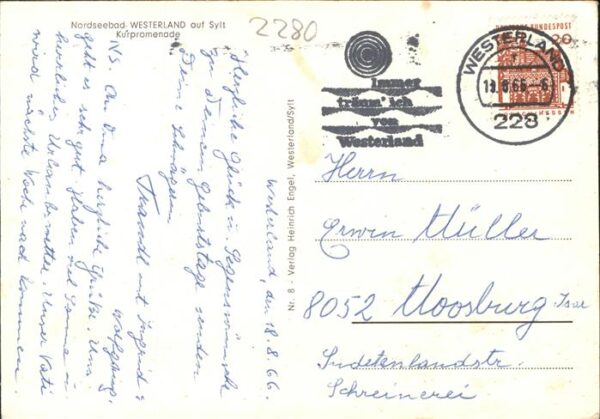 Nordseebad WESTERLAND auf Sylt
Kurpromenade
2280
DEUTSCHE BUNDESPOST
20
WESTERLAND
18.8.66-6
228
Immer
träum' ich
von
Westerland
Westerland, den 18.8.66.
Herzliche Glück u. Segenswünsche
zu Deinem Geburtstage senden
Deine Schwägerin
Traudl mit Ingrid u
Wolfgang.
NS. An Oma herzliche Grüße. Uns
geht es sehr gut. Haben viel Sonne u.
herrliches Urlaubswetter. Unser Vati
wird nächste Woche nach kommen.
Nr. 8 - Verlag Heinrich Engel, Westerland/Sylt
Herrn
Erwin Müller
8052 Moosburg Isar
Sudetenlandstr.
Schreinerei